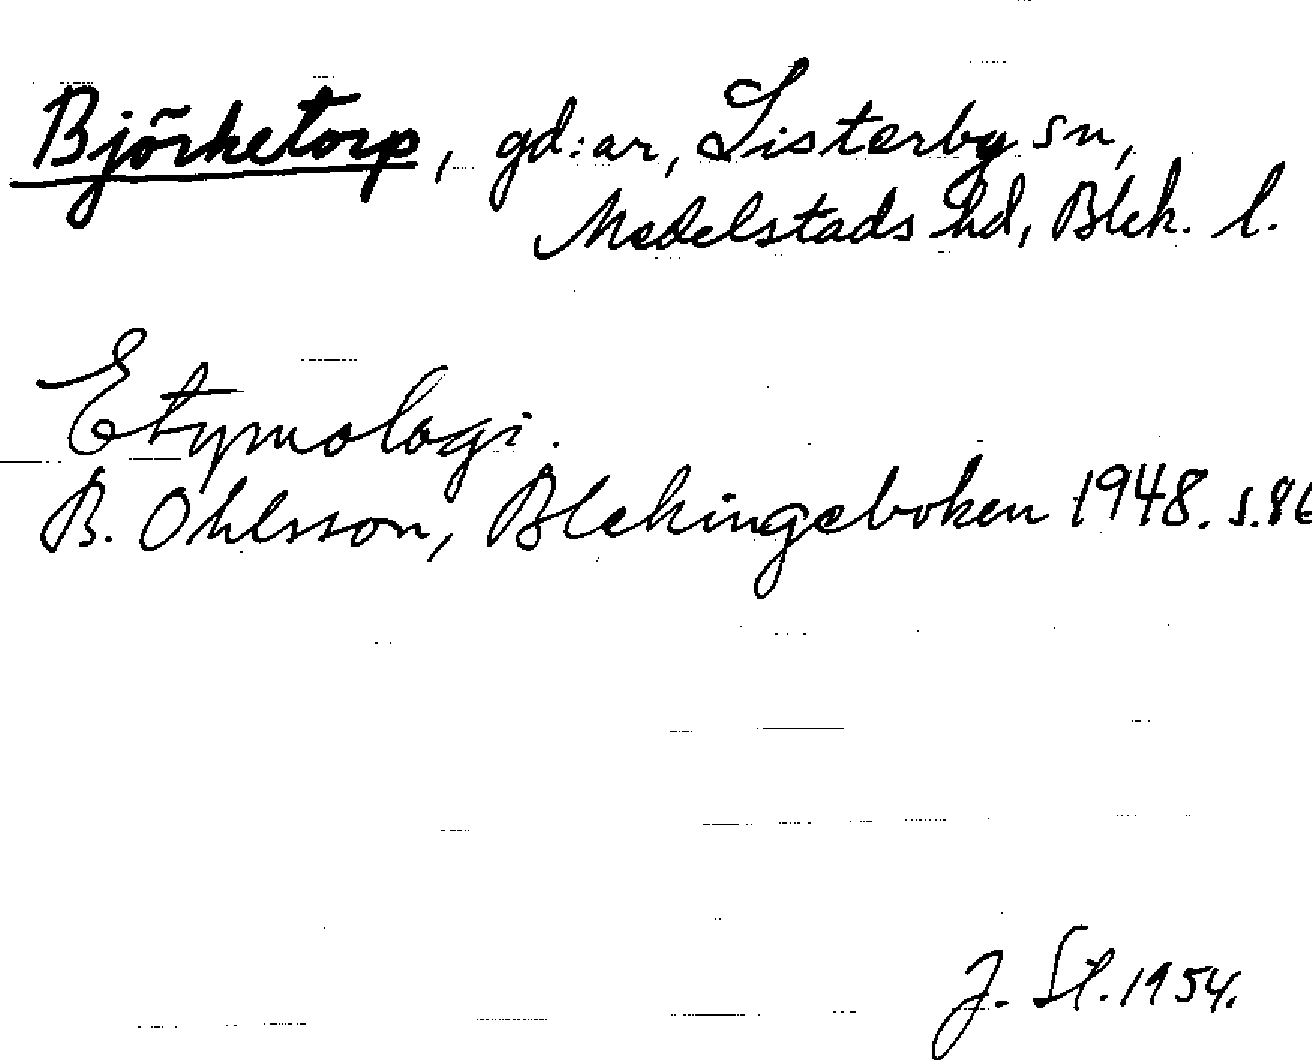 Björketorp, gd:ar, Listerby sn,
Medelstads hd, Blek. l.
Etymologi.
B. Ohlsson, Blekingeboken 1948. s.86
J. St. 1954.